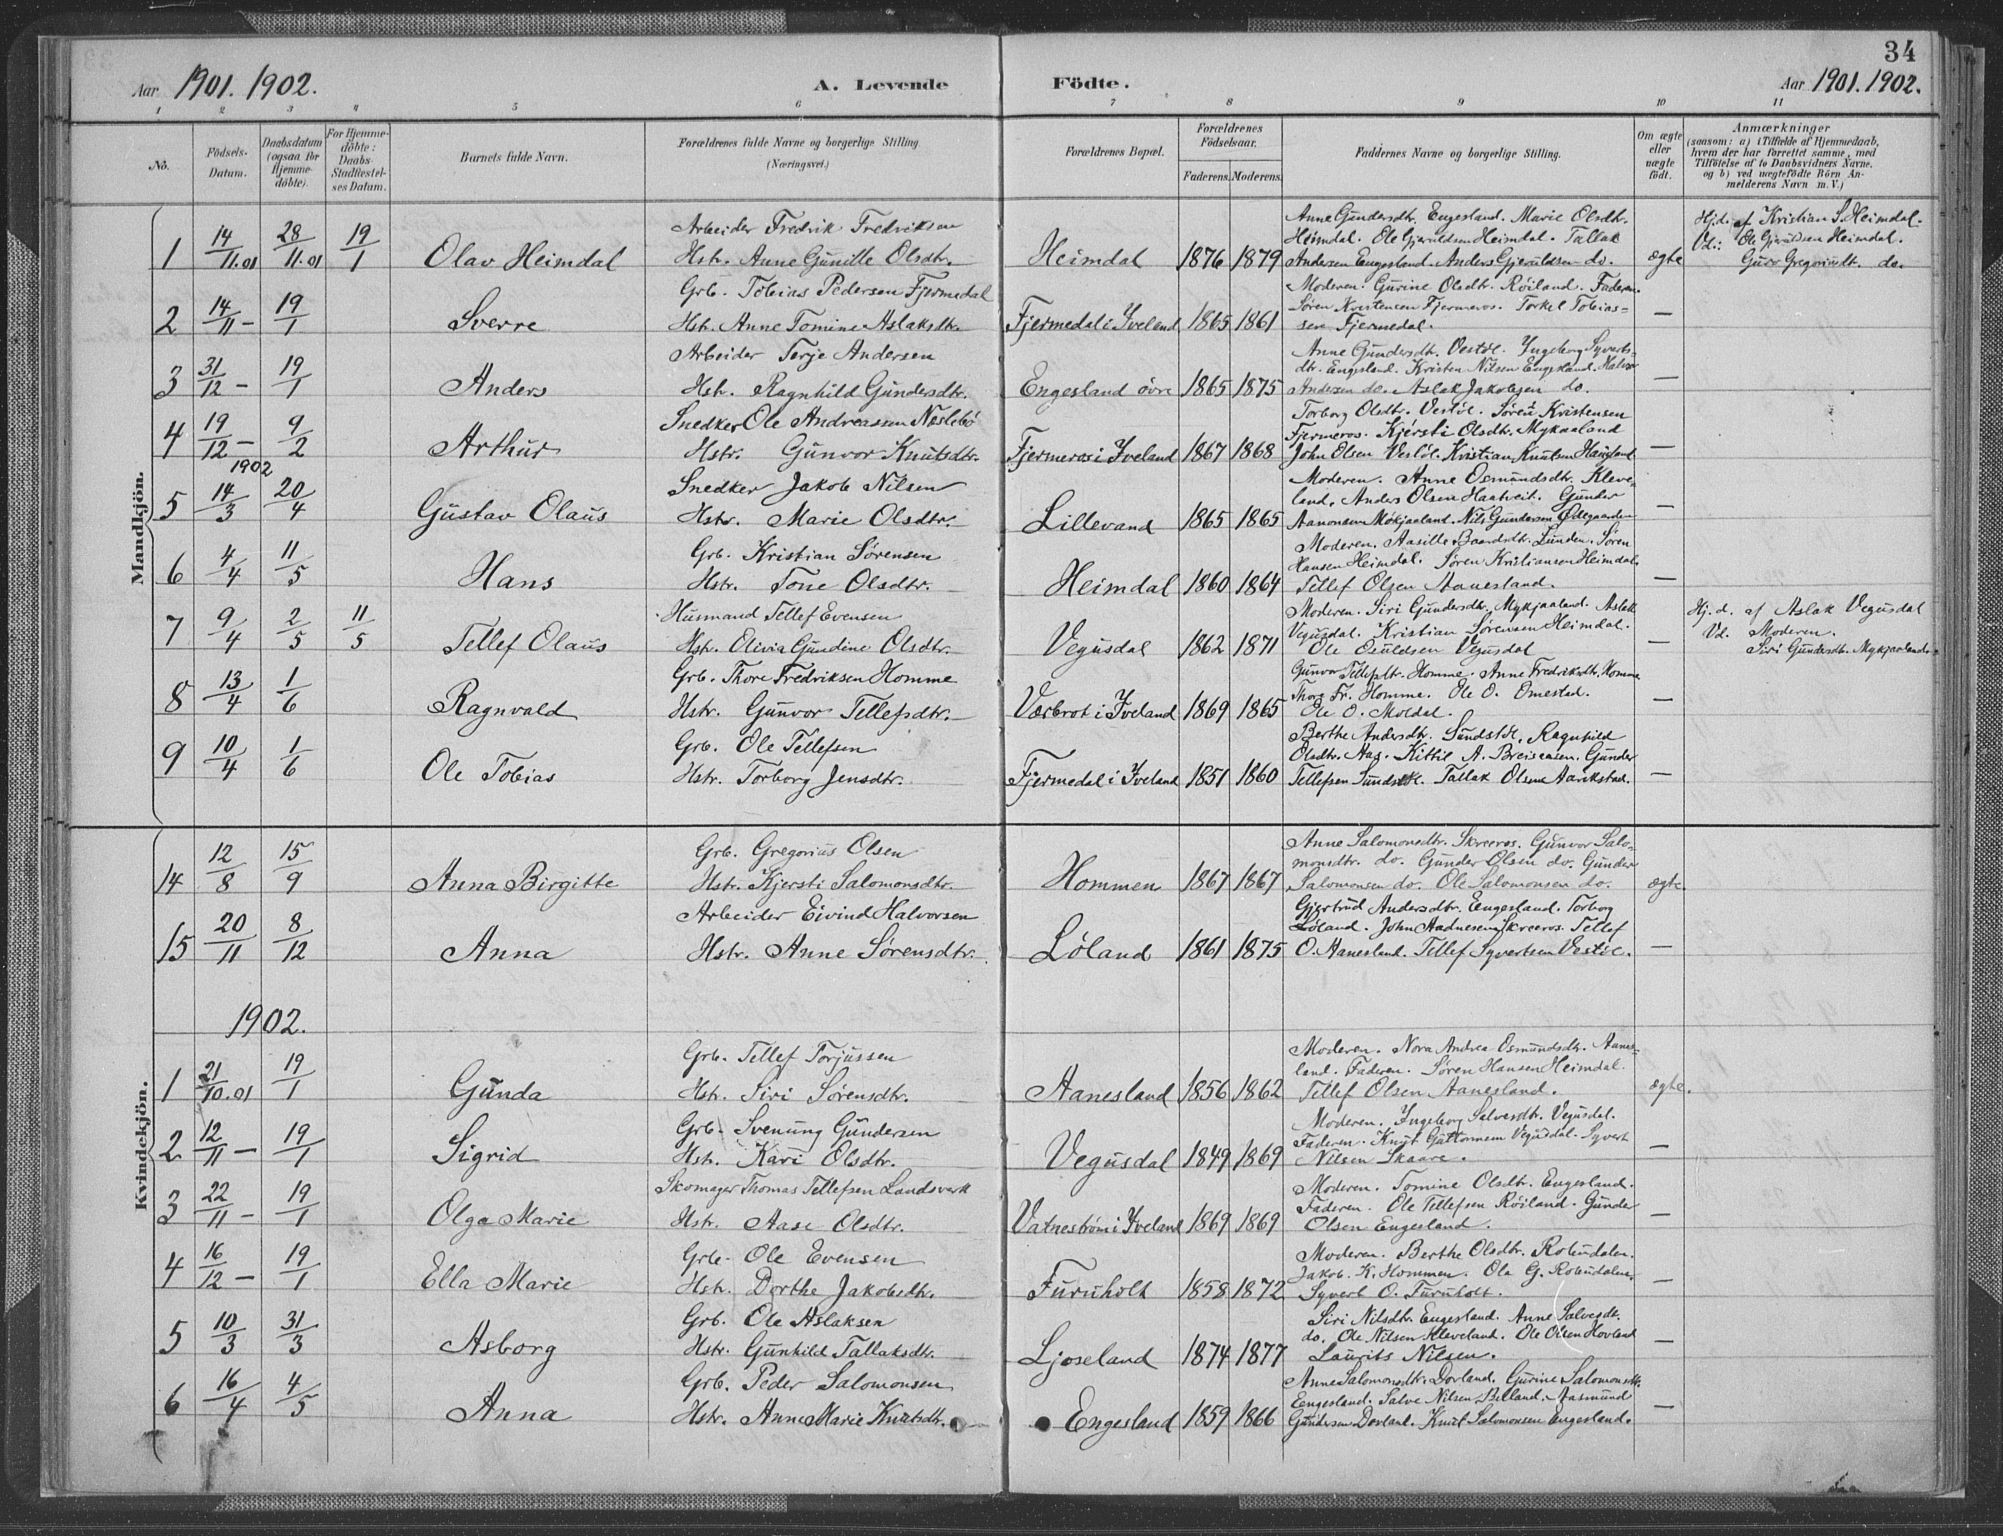 34
Aar 1901. 1902.
A. Levende Födte.
Aar 1901. 1902.
1 2 3 4 5 6 7 8 9 10 11
No.
Födsels-Datum.
Daabsdatum (ogsaa for Hjemmedöbte).
For Hjemmedöbte: Daabs-Stadfæstelses Datum.
Barnets fulde Navn.
Forældrenes fulde Navne og borgerlige Stilling (Næringsvei.)
Forældrenes Bopæl.
Forældrenes Födselsaar.
Faderens. Moderens.
Faddernes Navne og borgerlige Stilling.
Om ægte eller uægte födt.
Anmærkninger
(saasom: a) i Tilfælde af Hjemmedaab, hvem der har forrettet samme, med Tilföielse af to Daabsvidners Navne. og b) ved uægtefödte Börn Anmelderens Navn m. V.)
Mandkjön.
1 14/11.01 28/11.01 19/1 Olav Heimdal
Arbeider Fredrik Fredriksen
Hstr. Anne Gunille Olsdtr.
Heimdal 1876 1879
Anne Gundersdtr. Engesland. Marie Olsdtr.
Heimdal. Ole Gjeruldsen Heimdal. Tallak
Andersen Engesland. Anders Gjeruldsen do.
ægte
Hjd. af Kristian S. Heimdal.
Vd.: Ole Gjeruldsen Heimdal.
do.
2 14/11 – 19/1 Sverre
Grb. Tobias Pedersen Fjermedal
Hstr. Anne Tomine Aslaksdtr.
Fjermedal i Iveland 1865 1861
Moderen. Gurine Olsdtr. Röiland. Faderen.
Søren Kristensen Fjermeros. Torkel Tobias=
sen Fjermedal. —
3 31/12 – 19/1 Anders
Arbeider Terje Andersen
Hstr. Ragnhild Gundersdtr.
Engesland övre 1865 1875
Anne Gundersdtr. Vestöl. Ingeborg Syverts=
dtr. Engesland. Kristen Nilsen Engesland. Halvor
Andersen do. Aslak Jakobsen do. —
4 19/12 – 9/2 Arthur
Snedker Ole Andreassen Neslebö
Hstr. Gunvor Knutsdtr.
Fjermeros i Iveland 1867 1868
Torborg Olsdtr. Vestöl. Søren Kristensen
Fjermeros. Kjersti Olsdtr. Mykaaland
John Olsen Vestöl. Kristian Knutsen Haugland —
1902
5 14/3 20/4 Gustav Olaus
Snedker Jakob Nilsen
Hstr. Marie Olsdtr.
Lillevand 1865 1865
Moderen. Anne Osmundsdtr. Kleve=
land. Anders Olsen Haatveit. Gunder
Aanonsen Mökjaaland. Nils Gundersen Ødegaarden —
6 4/4 11/5 Hans
Grb. Kristian Sørensen
Hstr. Tone Olsdtr.
Heimdal 1860 1864
Moderen. Aasille Baardsdtr. Lunden. Søren
Hansen Heimdal. Søren Kristiansen Heimdal.
Tellef Olsen Aanesland. —
7 9/4 2/5 11/5 Tellef Olaus
Husmand Tellef Evensen
Hstr. Olivia Gundine Olsdtr.
Vegusdal 1862 1871
Moderen. Siri Gundersdtr. Mykjaaland. Aslak
Vegusdal. Kristian Sørensen Heimdal.
Ole Osuldsen Vegusdal —
Hj. d. af Aslak Vegusdal
Vd. Moderen.
Siri Gundersdtr. Mykjaaland.
8 13/4 1/6 Ragnvald
Grb. Thore Fredriksen Homme
Hstr. Gunvor Tellefsdtr.
Værbrot i Iveland 1869 1865
Gunvor Tellefsdtr. Homme. Anne Fredriksdtr. Homme
Thore Fr. Homme. Ole O. Omestad.
Ole O. Moldal. —
9 10/4 1/6 Ole Tobias
Grb. Ole Tellefsen
Hstr. Torborg Jensdtr.
Fjermedal i Iveland 1851 1860
Berthe Andersdtr. Sundstöl. Ragnhild
Olsdtr. Aas. Kittil A. Breisaasen. Gunder
Tellefsen Sundstöl. Tallak Olsen Aarikstad. —
Kvindekjön.
14 12/8 15/9 Anna Birgitte
Grb. Gregorius Olsen
Hstr. Kjersti Salomonsdtr.
Hommen 1867 1867
Anne Salomonsdtr. Skreros. Gunvor Salo=
monsdtr. do. Gunder Olsen do. Gunder
Salomonsen do. Ole Salomonsen do. ægte.
15 20/11 8/12 Anna
Arbeider Eivind Halvorsen
Hstr. Anne Sørensdtr.
Löland 1861 1875
Gjertrud Andersdtr. Engesland. Torborg
Löland. John Aadnesen Skreros. Tellef
O. Aanesland. Tellef Syvertsen Vestöl. —
1902.
1 21/10.01 19/1 Gunda
Grb. Tellef Torjussen
Hstr. Siri Sørensdtr.
Aanesland 1856 1862
Moderen. Nora Andrea Osmundsdtr. Aanes=
land. Faderen. Søren Hansen Heimdal.
Tellef Olsen Aanesland. ægte.
2 12/11 – 19/1 Sigrid
Grb. Svenung Gundersen
Hstr. Kari Olsdtr.
Vegusdal 1849 1869
Moderen. Ingeborg Salvesdtr. Vegusdal.
Faderen. Knut Guttormsen Vegusdal. Syvert
Nilsen Skaare. —
3 22/11 – 19/1 Olga Marie
Skomager Thomas Tellefsen Landsverk
Hstr. Aase Olsdtr.
Vatneström i Iveland 1869 1869
Moderen. Tomine Olsdtr. Engesland.
Faderen. Ole Tellefsen Röiland. Gunder
Olsen Engesland. —
4 16/12 – 19/1 Ella Marie
Grb. Ole Evensen
Hstr. Dorthe Jakobsdtr.
Furuholt 1858 1872
Moderen. Berthe Olsdtr. Robudalen.
Jakob. K. Hommen. Ola G. Robudalen.
Syvert O. Furuholt. —
5 10/3 31/3 Asborg
Grb. Ole Aslaksen
Hstr. Gunhild Tallaksdtr.
Ljoseland 1874 1877
Siri Nilsdtr. Engesland. Anne Salvesdtr.
do. Ole Nilsen Kleveland. Ole Olsen Hovland
Laurits Nilsen. —
6 16/4 4/5 Anna
Grb. Peder Salomonsen
Hstr. Anne Marie Knutsdtr.
Engesland 1859 1866
Anne Salomonsdtr. Dovland. Gurine Salomonsdtr.
Engesland. Salve Nilsen Belland. Aasmund
Gundersen Dovland. Knut Salomonsen Engesland. —